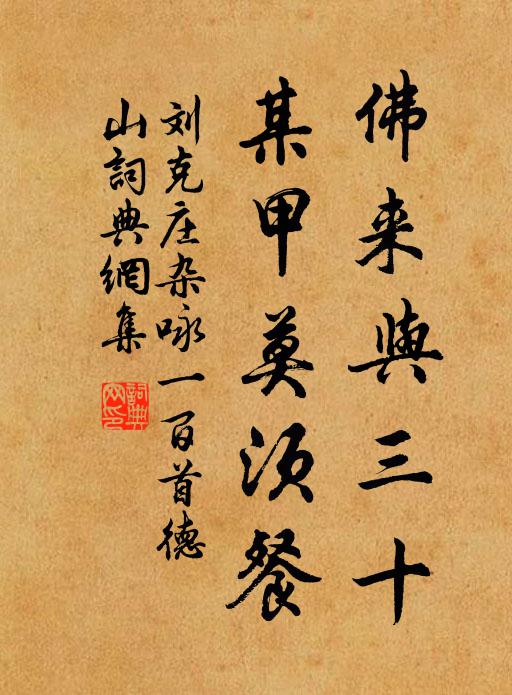 佛来與三十
某甲莫须餐
刘克庄杂咏一百首德
山詞典網集
詞典
网印